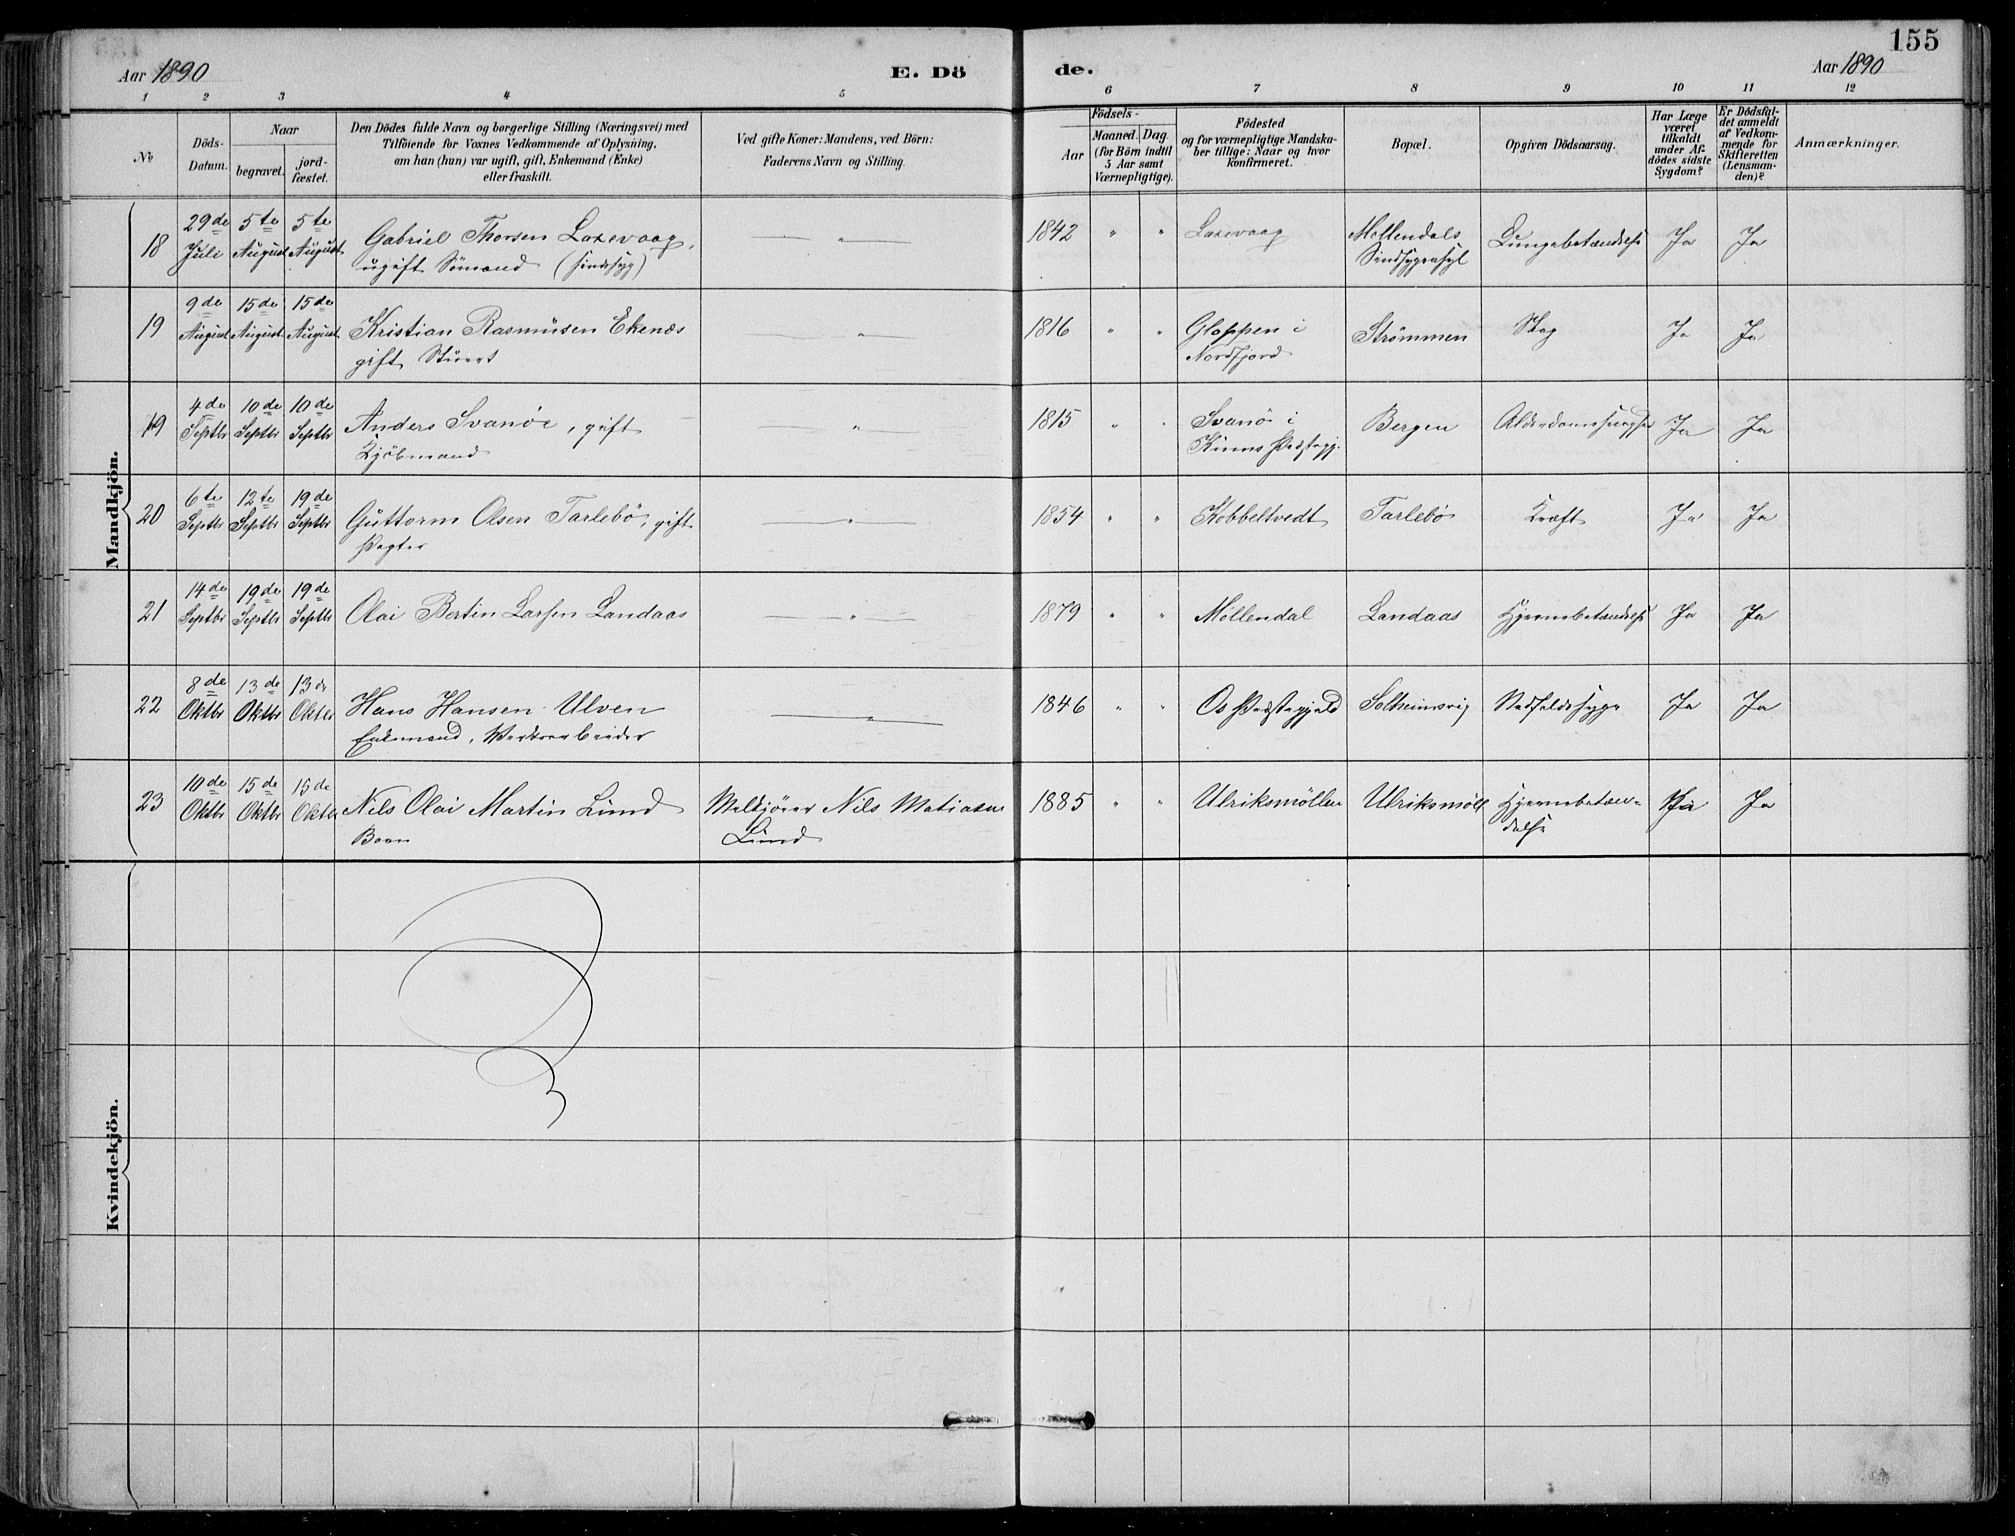 155
Aar 1890
E. Dö
de.
Aar 1890
1 2 3 4 5 6 7 8 9 10 11 12
№
Döds-
Datum.
Naar
begravet.
jord-
fæstet.
Den Dödes fulde Navn og borgerlige Stilling (Næringsvei) med
Tilföiende for Voxnes Vedkommende af Oplysning,
om han (hun) var ugift, gift, Enkemand (Enke)
eller fraskilt.
Ved gifte Koner: Mandens, ved Börn:
Faderens Navn og Stilling.
Födsels-
Aar
Maaned. Dag.
(for Börn indtil
5 Aar samt
Værnepligtige).
Födested
og for værnepligtige Mandska-
ber tillige: Naar og hvor
konfirmeret.
Bopæl.
Opgiven Dödsaarsag.
Har Læge
været
tilkaldt
under Af-
dödes sidste
Sygdom?
Er Dödsfal-
det anmeldt
af Vedkom-
mende for
Skifteretten
(Lensman-
den)?
Anmærkninger.
Mandkjön.
18 29de Juli 5te August 5te August Gabriel Thorsen Laxevaag,
ugift Sömand (sindssyg)
" 1842 " " Laxevaag Möllendals
Sindsygeasyl Lungebetændelse Ja Ja
19 9de August 15de August 15de August Kristian Rasmusen Ekenæs
gift Stuert
" 1816 " " Gloppen i
Nordfjord Strömmen Slag Ja Ja
19 4de Septbr 10de Septbr 10de Septbr Anders Svanöe, gift
Kjöbmand
" 1815 " " Svanö i
Kinns Præstegj. Bergen Alderdomssvaghed Ja Ja
20 6te Septbr 12te Septbr 19de Septbr Guttorm Olsen Tarlebö, gift
Pagter
" 1854 " " Kobbeltvedt Tarlebö Kræft Ja Ja
21 14de Septbr 19de Septbr 19de Septbr Olai Bertin Larsen Landaas
" 1879 " " Möllendal Landaas Hjernebetændelse Ja Ja
22 8de Oktbr 13de Oktbr 13de Oktbr Hans Hansen Ulven
Enkemand,
" 1846 " " Os Præstegjeld Solheimsvig Nedfaldssyge Ja Ja
23 10de Oktbr 15de Oktbr 15de Oktbr Nils Olai Martin Lund
Barn
Nils Matias
Lund
1885 " " Ulriksmöllen Ulriksmöll Hjernebetæn-
delse Ja Ja
Kvindekjön.